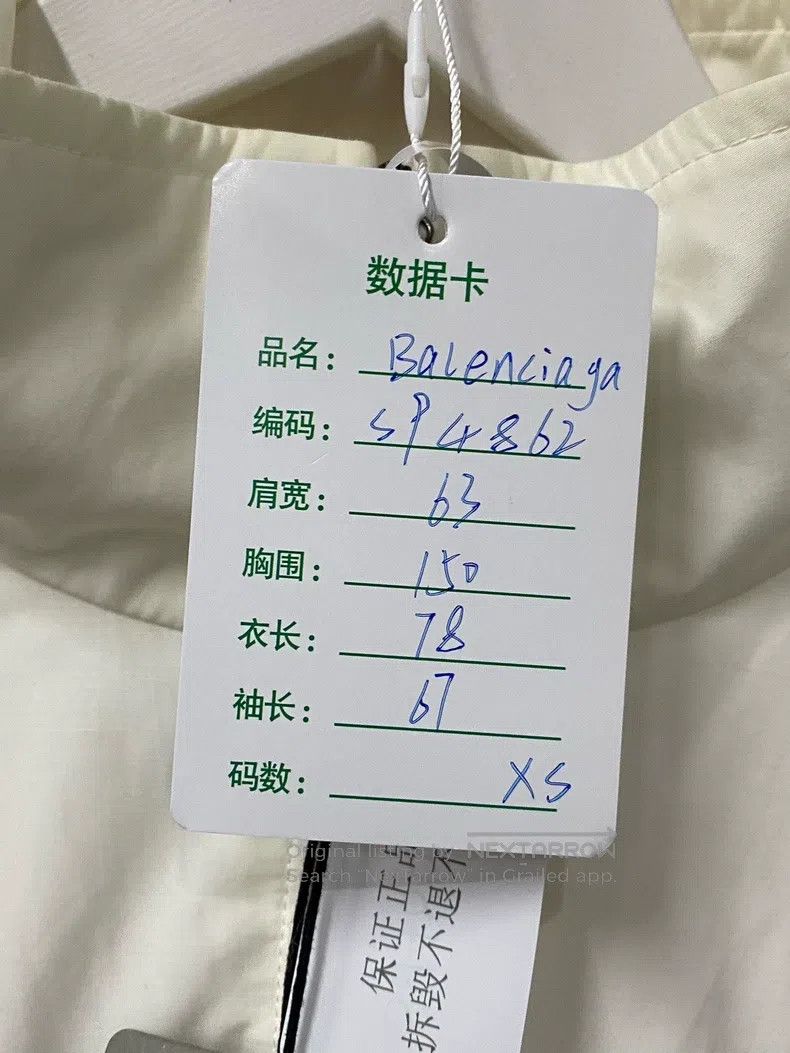 数据卡
品名: Balenciaga
编码: SP4862
肩宽: 63
胸围: 150
衣长: 78
袖长: 67
码数: XS
Original listing by NEXTARROW
Search "NexTarrow" in Grailed app.
保证正
拆毁不退不